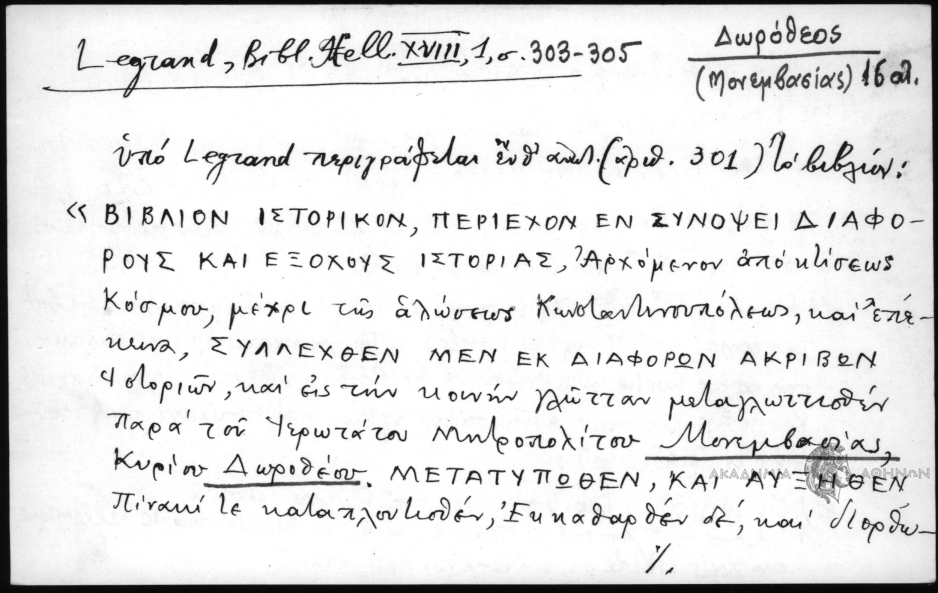 Legrand, Bibl. Hell. XVIII, 1, σ. 303-305
Δωρόθεος
(Μονεμβασίας) 16 αι.
ὑπό Legrand περιγράφεται ἐνθ' ἀνωτ. (ἀριθ. 301) τό βιβλίον:
« ΒΙΒΛΙΟΝ ΙΣΤΟΡΙΚΟΝ, ΠΕΡΙΕΧΟΝ ΕΝ ΣΥΝΟΨΕΙ ΔΙΑΦΟ-
ΡΟΥΣ ΚΑΙ ΕΞΟΧΟΥΣ ΙΣΤΟΡΙΑΣ, Ἀρχόμενον ἀπό κτίσεως
Κόσμου, μέχρι τῆς ἁλώσεως Κωνσταντινουπόλεως, καί ἐπέ-
κεινα, ΣΥΛΛΕΧΘΕΝ ΜΕΝ ΕΚ ΔΙΑΦΟΡΩΝ ΑΚΡΙΒΩΝ
Ἱστοριῶν, καί εἰς τήν κοινήν γλῶτταν μεταγλωττισθέν
Παρά τοῦ Ἱερωτάτου Μητροπολίτου Μονεμβασίας,
Κυρίου Δωροθέου. ΜΕΤΑΤΥΠΩΘΕΝ, ΚΑΙ ΑΥΞΗΘΕΝ
Πίνακί τε καταπλουτισθέν, Ἐκκαθαρθέν δέ, καί διορθω-
%.
ΑΚΑΔΗΜΙΑ ΑΘΗΝΩΝ